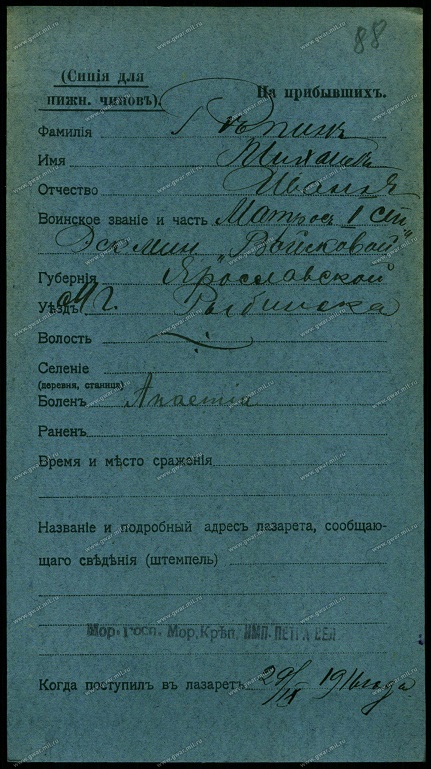 88
(Синія для
нижн. чиновъ).
На прибывшихъ.
Фамилія
Имя Михаилъ
Отчество Ивановъ
Воинское званіе и часть Матрос 1 ст.
Эск. мин. "Войсковой"
Губернія Ярославской
Уѣздъ г. Рыбинска
Волость
Селеніе
(деревня, станица)
Боленъ
Раненъ
Время и мѣсто сраженія
Названіе и подробный адресъ лазарета, сообщаю-
щаго свѣдѣнія (штемпель)
Мор. Госп. Мор. Крѣп. ИМП. ПЕТРА ВЕЛ.
Когда поступил въ лазаретъ 29/IX 1916 года